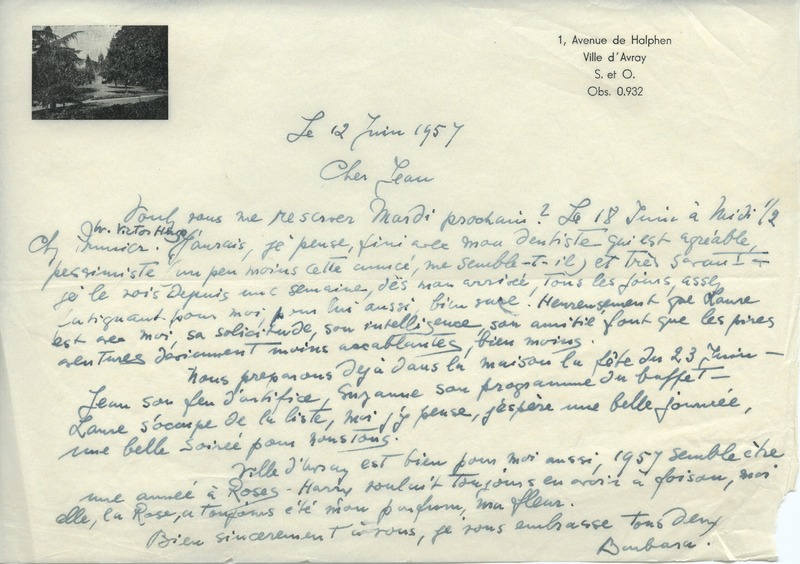 1, Avenue de Halphen
Ville d'Avray
S. et O.
Obs. 0.932
Le 12 Juin 1957
Cher Jean
Voulez vous me reserver Mardi prochain? Le 18 Juin à Midi 1/2
Av. Victor Hugo
Chez Prunier. J'aurais, je pense, fini avec mon dentiste qui est agréable,
pessimiste (un peu moins cette année, me semble-t-il) et très savant -
je le vois depuis une semaine, dès mon arrivée, tous les jours, assez
fatiguant pour moi, pour lui aussi, bien sure! Heureusement que Laure
est avec moi, sa solicitude, son intelligence, son amitié font que les pires
aventures deviennent moins accablantes, bien moins.
Nous preparons déjà dans la maison la fête du 23 Juin -
Jean son feu d'artifice, Suzanne son programme du buffet -
Laure s'occupe de la liste, moi j'y pense, j'espère une belle journée,
une belle soirée pour nous tous.
Ville d'Avray est bien pour moi aussi, 1957 semble être
une année à Roses - Harry voulait toujours en avoir à foison, moi
elle, la Rose, a toujours été mon parfum, ma fleur.
Bien sincerement à vous, je vous embrasse tous deux
Barbara.